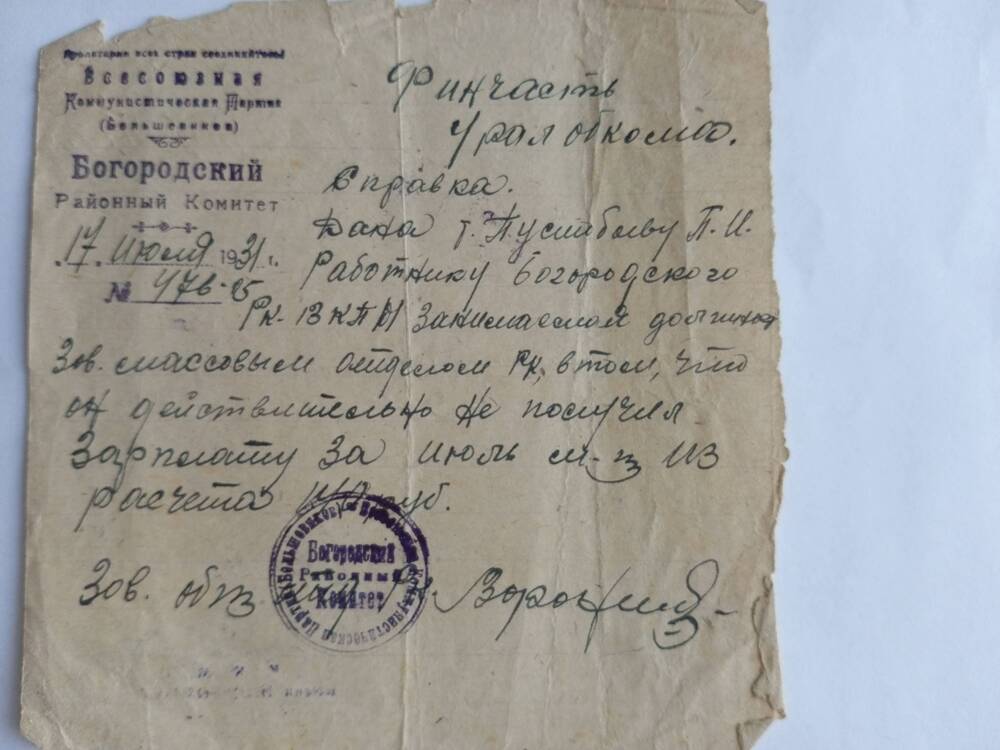 Пролетарии всех стран соединяйтесь!
Всесоюзная
Коммунистическая Партия
(Большевиков)
Богородский
Районный Комитет
17 июля 1931 г.
№
Финчасть
Уралобкома.
Справка.
Дана т. П. И.
Работнику Богородского
Рк. ВКП(б) Занимаемой
Зав. массовым отделом Рк, в том, что
он действительно не получил
Зарплату за июль м-ц из
расчета руб.
Зав.
Богородский
Районный
Комитет